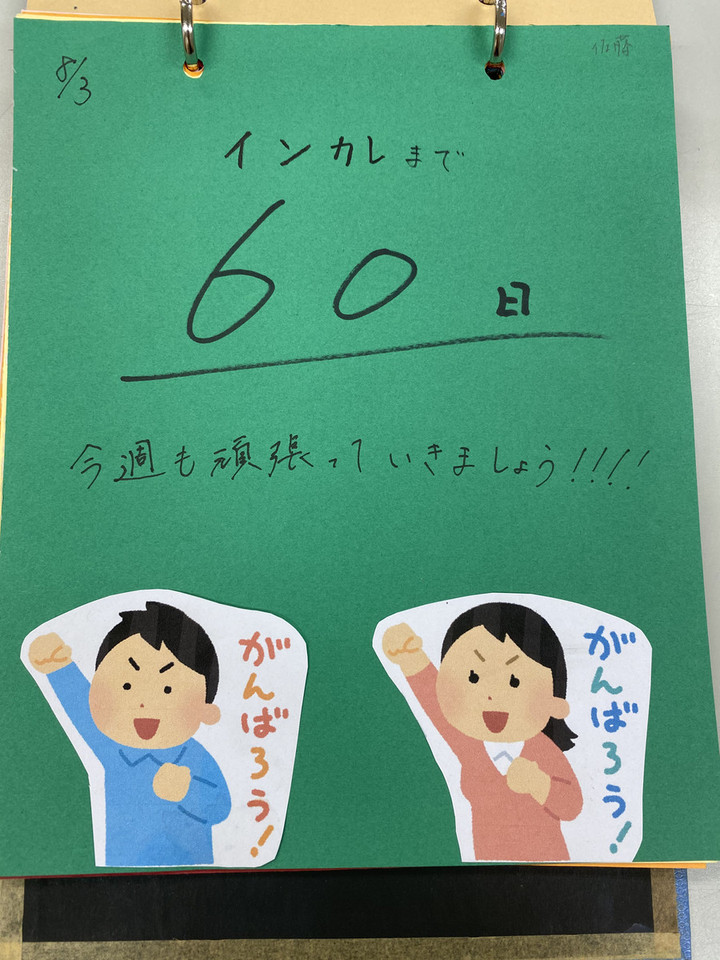 8/3
佐藤
インカレまで
60日
今週も頑張っていきましょう!!!!
がんばろう!
がんばろう!